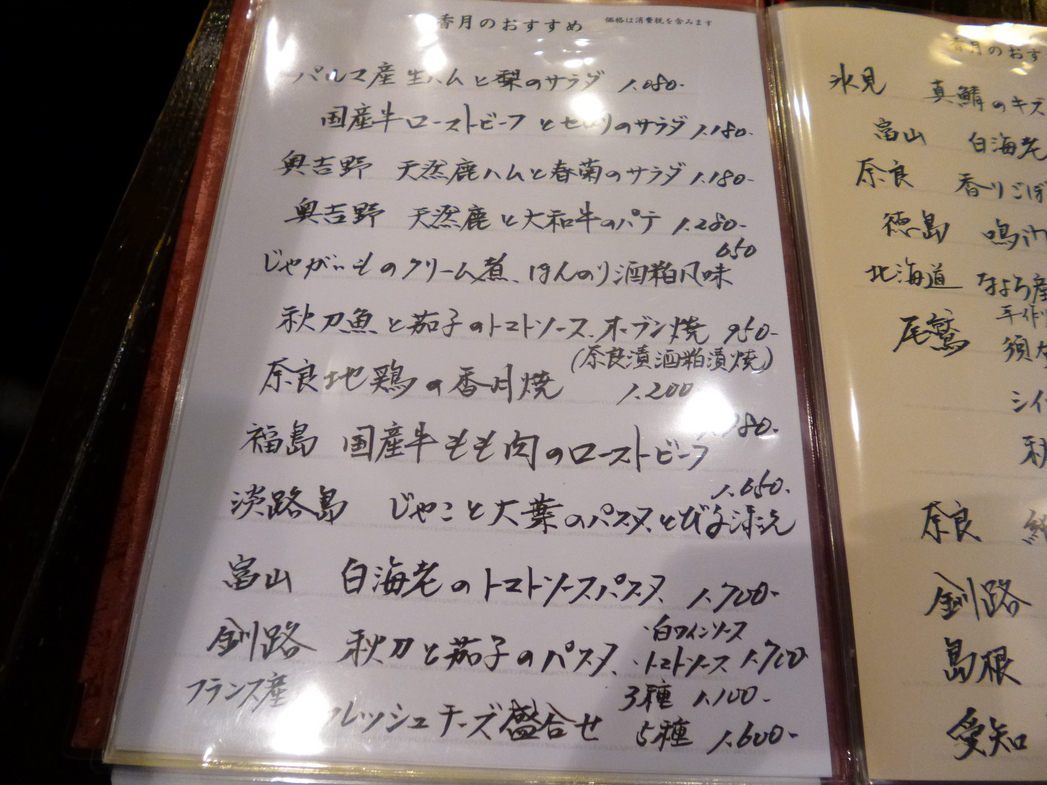 香月のおすすめ 価格は消費税を含みます
パルマ産 生ハムと梨のサラダ 1.080-
国産牛ローストビーフとセロリのサラダ 1.180-
奥吉野 天然鹿ハムと春菊のサラダ 1.180-
奥吉野 天然鹿と大和牛のパテ 1.280-
650
じゃがいものクリーム煮、ほんのり酒粕風味
秋刀魚と茄子のトマトソース、オーブン焼 950-
(奈良漬酒粕漬焼)
奈良地鶏の香月焼 1.200
福島 国産牛もも肉のローストビーフ
1.650-
淡路島 じゃこと大葉のパスタ
富山 白海老のトマトソースパスタ 1.700-
・白ワインソース
釧路 秋刀と茄子のパスタ ・トマトソース 1.700
フランス産 3種 1.100-
レッシュチーズ盛合せ 5種 1.600-
香月のおす
氷見 真鯖のキズ
富山 白海老
奈良 香りごぼ
徳島 鳴門
北海道 なよろ産
手作り
尾鷲 須
シイ
秋
奈良
釧路
島根
愛知